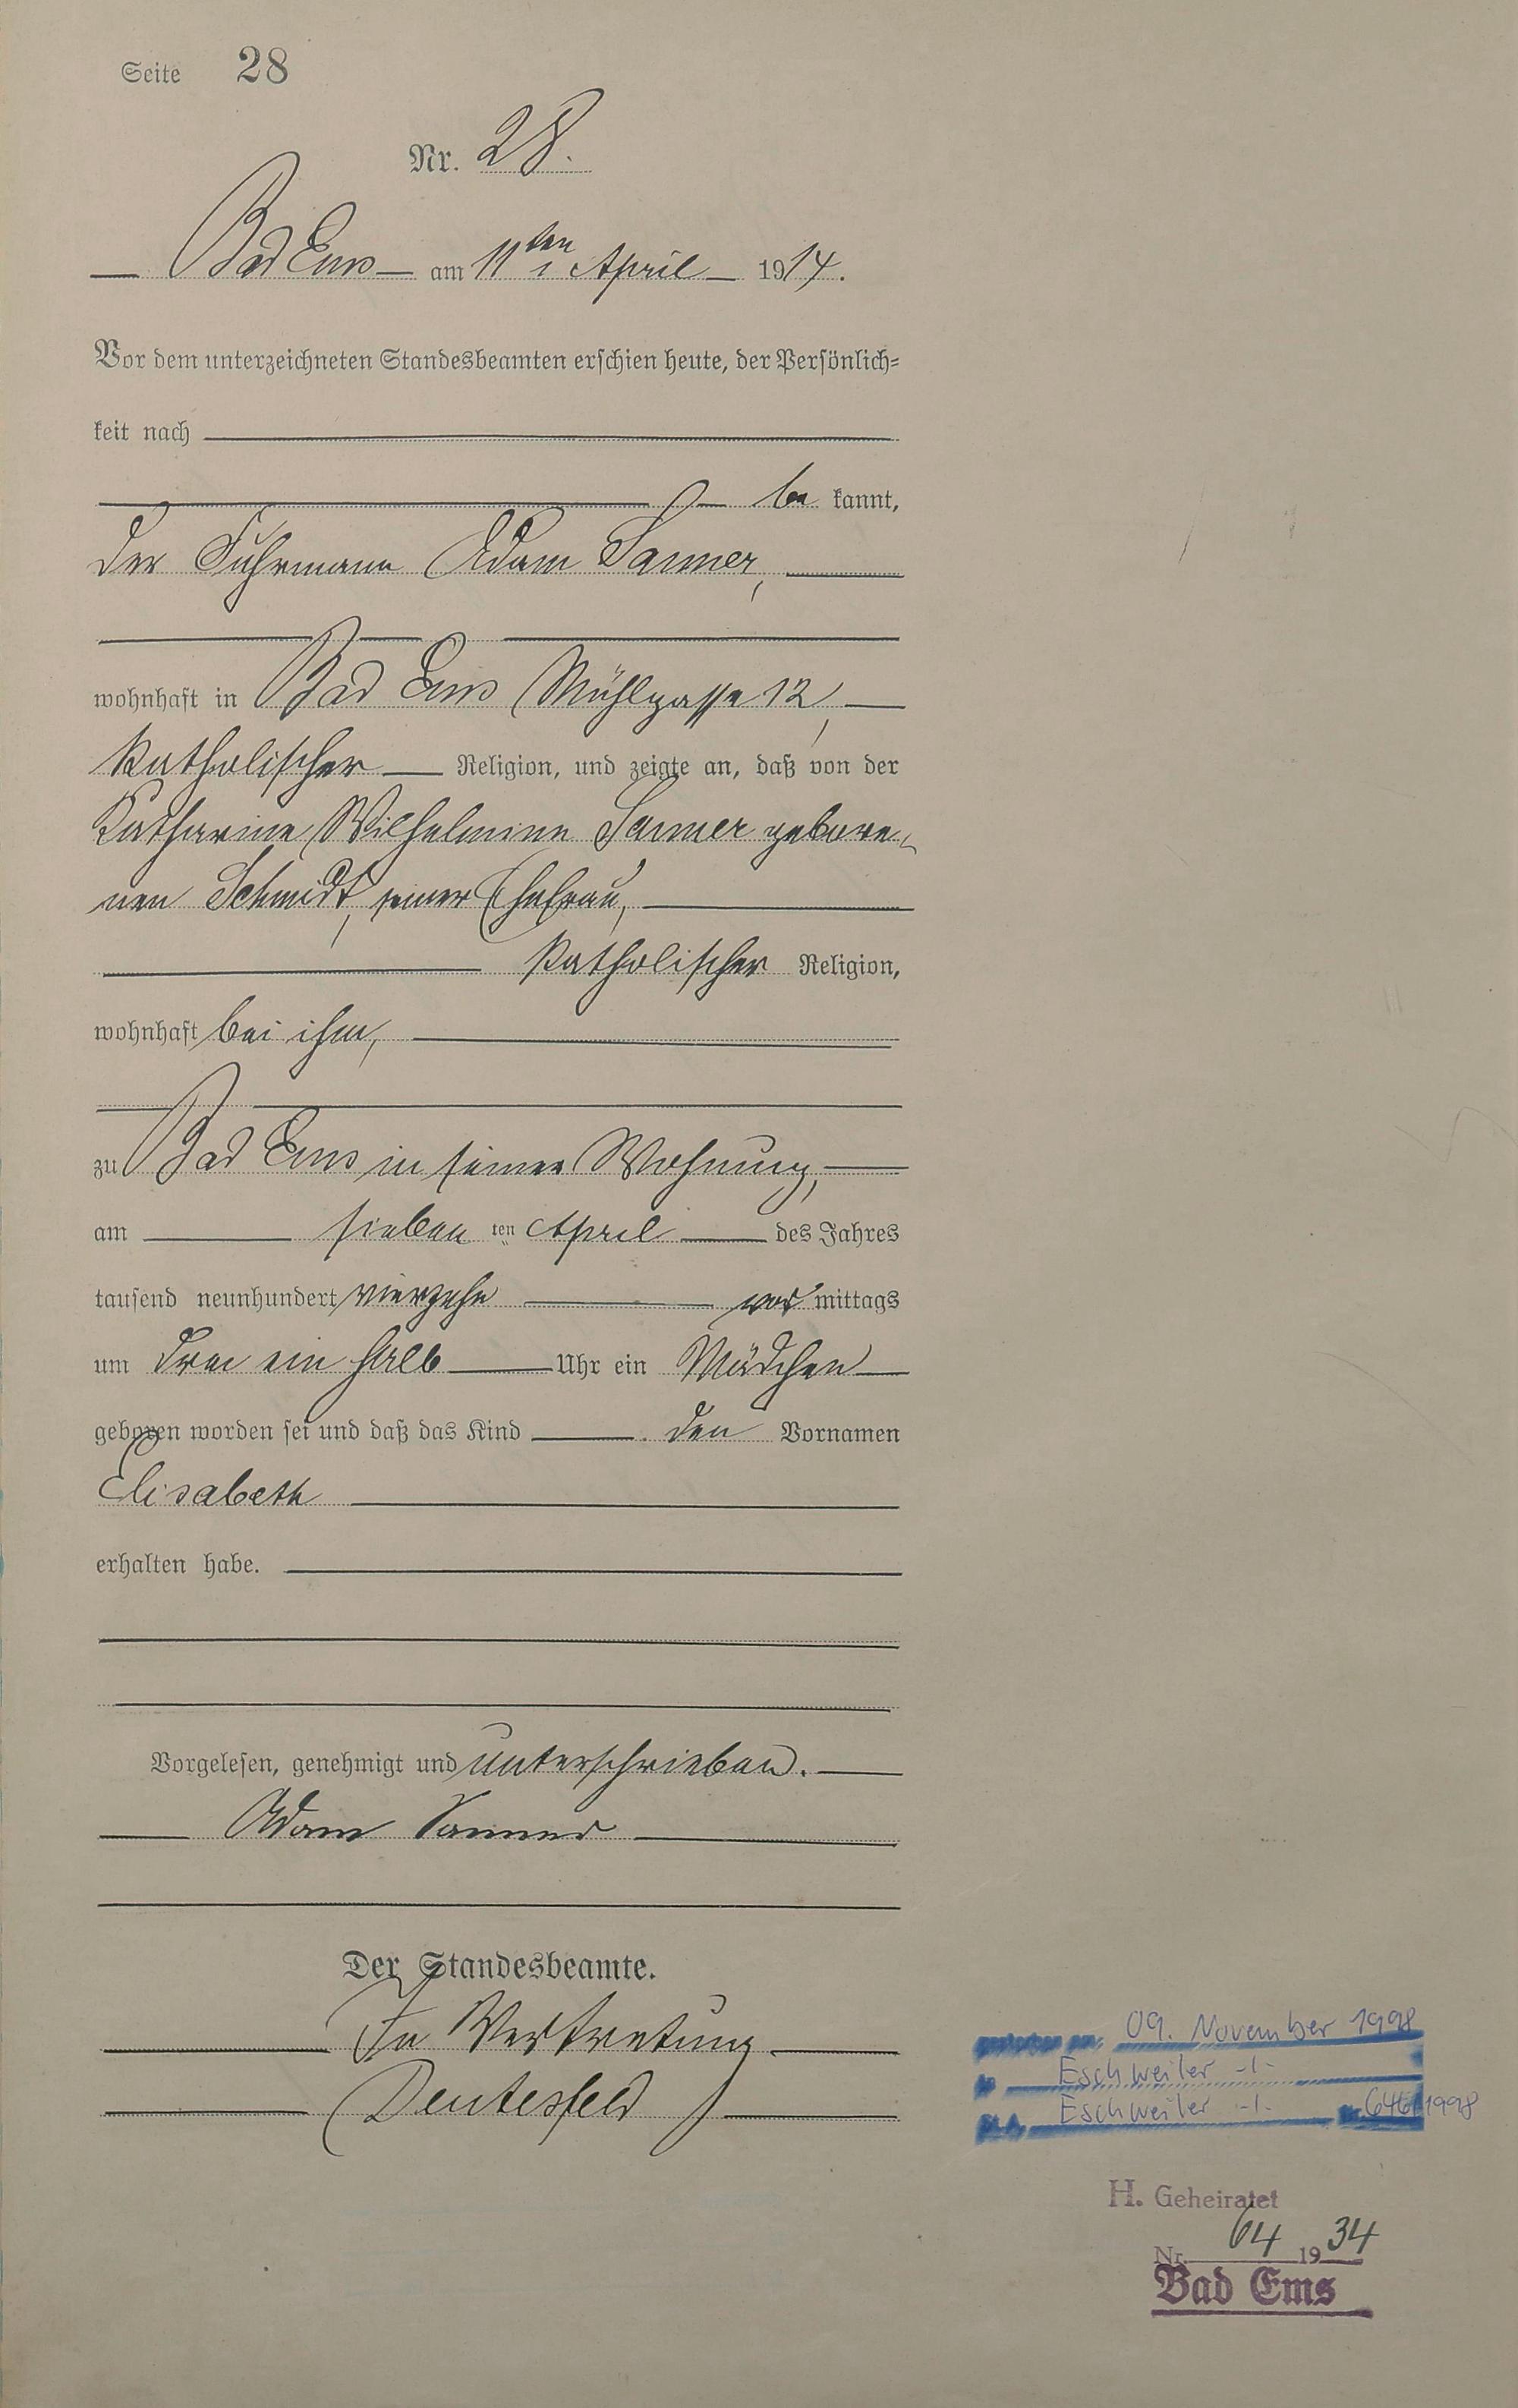 Seite 28
Nr. 28.
Bad Ems am 11ten April 1914.
Vor dem unterzeichneten Standesbeamten erschien heute, der Persönlich=
keit nach
be kannt,
der Fuhrmann Adam Sanner,
wohnhaft in Bad Ems Mühlgasse 12,
katholischer Religion, und zeigte an, daß von der
Katharine Wilhelmine Sanner gebore-
nen Schmidt, seiner Ehefrau,
katholischer Religion,
wohnhaft bei ihm,
zu Bad Ems in seiner Wohnung,
am sieben ten April des Jahres
tausend neunhundert vierzehn vor mittags
um drei ein halb Uhr ein Mädchen
geboren worden sei und daß das Kind den Vornamen
Elisabeth
erhalten habe.
Vorgelesen, genehmigt und unterschrieben.
Adam Sanner
Der Standesbeamte.
In Vertretung
Deutesfeld
gestorben am 09. November 1998
in Eschweiler -/-
St.A. Eschweiler -/- Nr. 646/1998
H. Geheiratet
Nr. 64 1934
Bad Ems